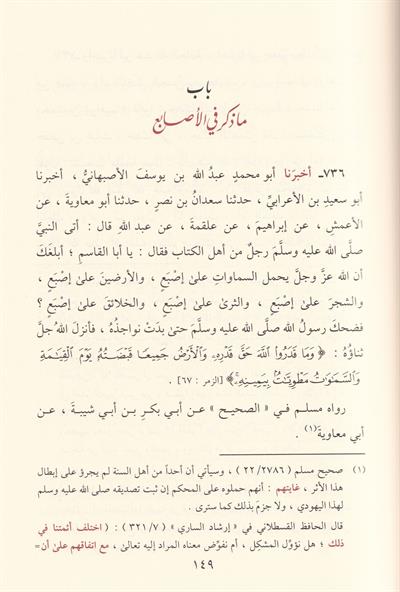 باب
ما ذكر في الأصابع
٧٣٦ـ أخبرَنا أبو محمدٍ عبدُ الله بن يوسفَ الأصبهانيُّ ، أخبرنا
أبو سعيدِ بن الأعرابيِّ ، حدثنا سعدانُ بن نصرٍ ، حدثنا أبو معاويةَ ، عن
الأعمشِ ، عن إبراهيمَ ، عن علقمةَ ، عن عبدِ اللهِ قال : أتى النبيَّ
صلَّى الله عليه وسلَّمَ رجلٌ من أهل الكتاب فقال : يا أبا القاسمِ ؛ أبلغَكَ
أن الله عزَّ وجلَّ يحمل السماواتِ على إصْبَعٍ ، والأرضينَ على إصْبَعٍ ،
والشجرَ على إصْبَعٍ ، والثرىٰ على إصْبَعٍ ، والخلائقَ على إصْبَعٍ ؟
فضحكَ رسولُ الله صلَّى الله عليه وسلَّمَ حتى بدَتْ نواجذُهُ ، فأنزلَ اللهُ جلَّ
ثناؤُهُ : ﴿ وَمَا قَدَرُواْ اللَّهَ حَقَّ قَدْرِهِۦ وَٱلْأَرْضُ جَمِيعًا قَبْضَتُهُۥ يَوْمَ ٱلْقِيَٰمَةِ
وَٱلسَّمَٰوَٰتُ مَطْوِيَّٰتٌۢ بِيَمِينِهِۦ﴾ [الزمر : ٦٧] .
رواه مسلم في « الصحيح » عن أبي بكرِ بن أبي شيبةَ ، عن
أبي معاويةَ(١) .
(١) صحيح مسلم ( ٢٢/٢٧٨٦ ) ، وسيأتي أن أحداً من أهل السنة لم يجرؤ على إبطال
هذا الأثر ، غايتهم : أنهم حملوه على المحكم إن ثبت تصديقه صلى الله عليه وسلم
لهذا اليهودي ، ولا جزم بذلك كما سترى .
قال الحافظ القسطلاني في « إرشاد الساري » ( ٣٢١/٧ ) : ( اختلف أئمتنا في
ذلك ؛ هل نؤوِّل المشكِل ، أم نفوِّض معناه المراد إليه تعالى ، مع اتفاقهم على أن=
١٤٩